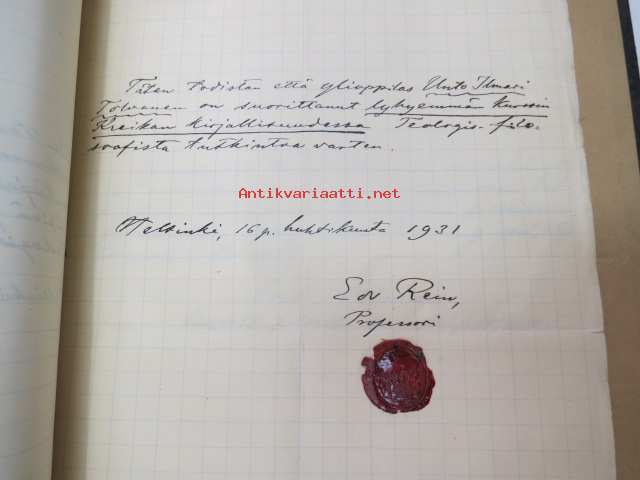 Täten todistan että ylioppilas Unto Ilmari
Tolvanen on suorittanut lyhyemmän kurssin
Kreikan kirjallisuudessa Teologis-filo-
soofista tutkintoa varten.
Antikvariaatti.net
Helsinki, 16 p. huhtikuuta 1931
Edv Rein,
Professori